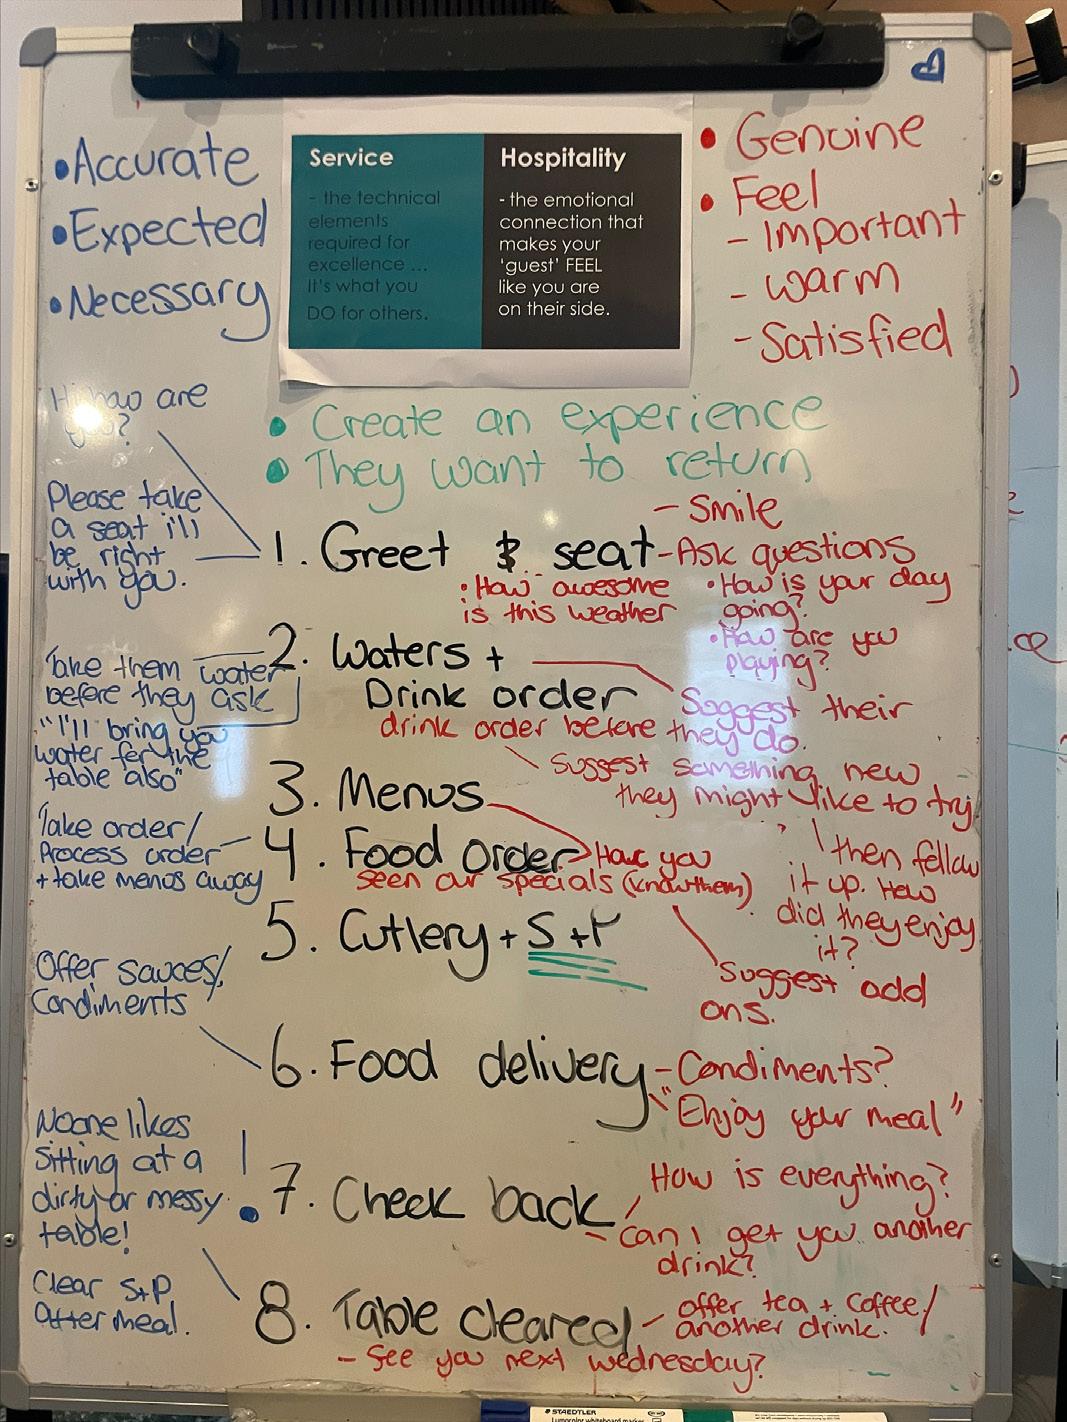 • Accurate
• Expected
• Necessary
Service
- the technical
elements
required for
excellence ...
it's what you
DO for others.
Hospitality
- the emotional
connection that
makes your
'guest' FEEL
like you are
on their side.
• Genuine
• Feel
- Important
- warm
- Satisfied
• Create an experience
• They want to return
Hi how are
you?
Please take
a seat i'll
be right
with you.
1. Greet & seat
- Smile
- Ask questions
• How awesome
is this weather
• How is your day
going?
• How are you
playing?
2. Waters +
Drink order
Take them water
before they ask
"I'll bring you
water for the
table also"
Suggest their
drink order before they do.
Suggest something new
they might like to try
then follow
it up. How
did they enjoy
it?
3. Menus
4. Food Order
Take order/
Process order
+ take menus away
Have you
seen our specials (know them)
Suggest add
ons.
5. Cutlery + S+P
Offer sauces/
Condiments
6. Food delivery
- Condiments?
"Enjoy your meal"
Noone likes
sitting at a
dirty or messy
table!
7. Check back
How is everything?
- can i get you another
drink?
Clear S+P
After meal.
8. Table cleared
- offer tea + coffee/
another drink.
- See you next wednesday?
STAEDTLER
Lumocolor whiteboard marker